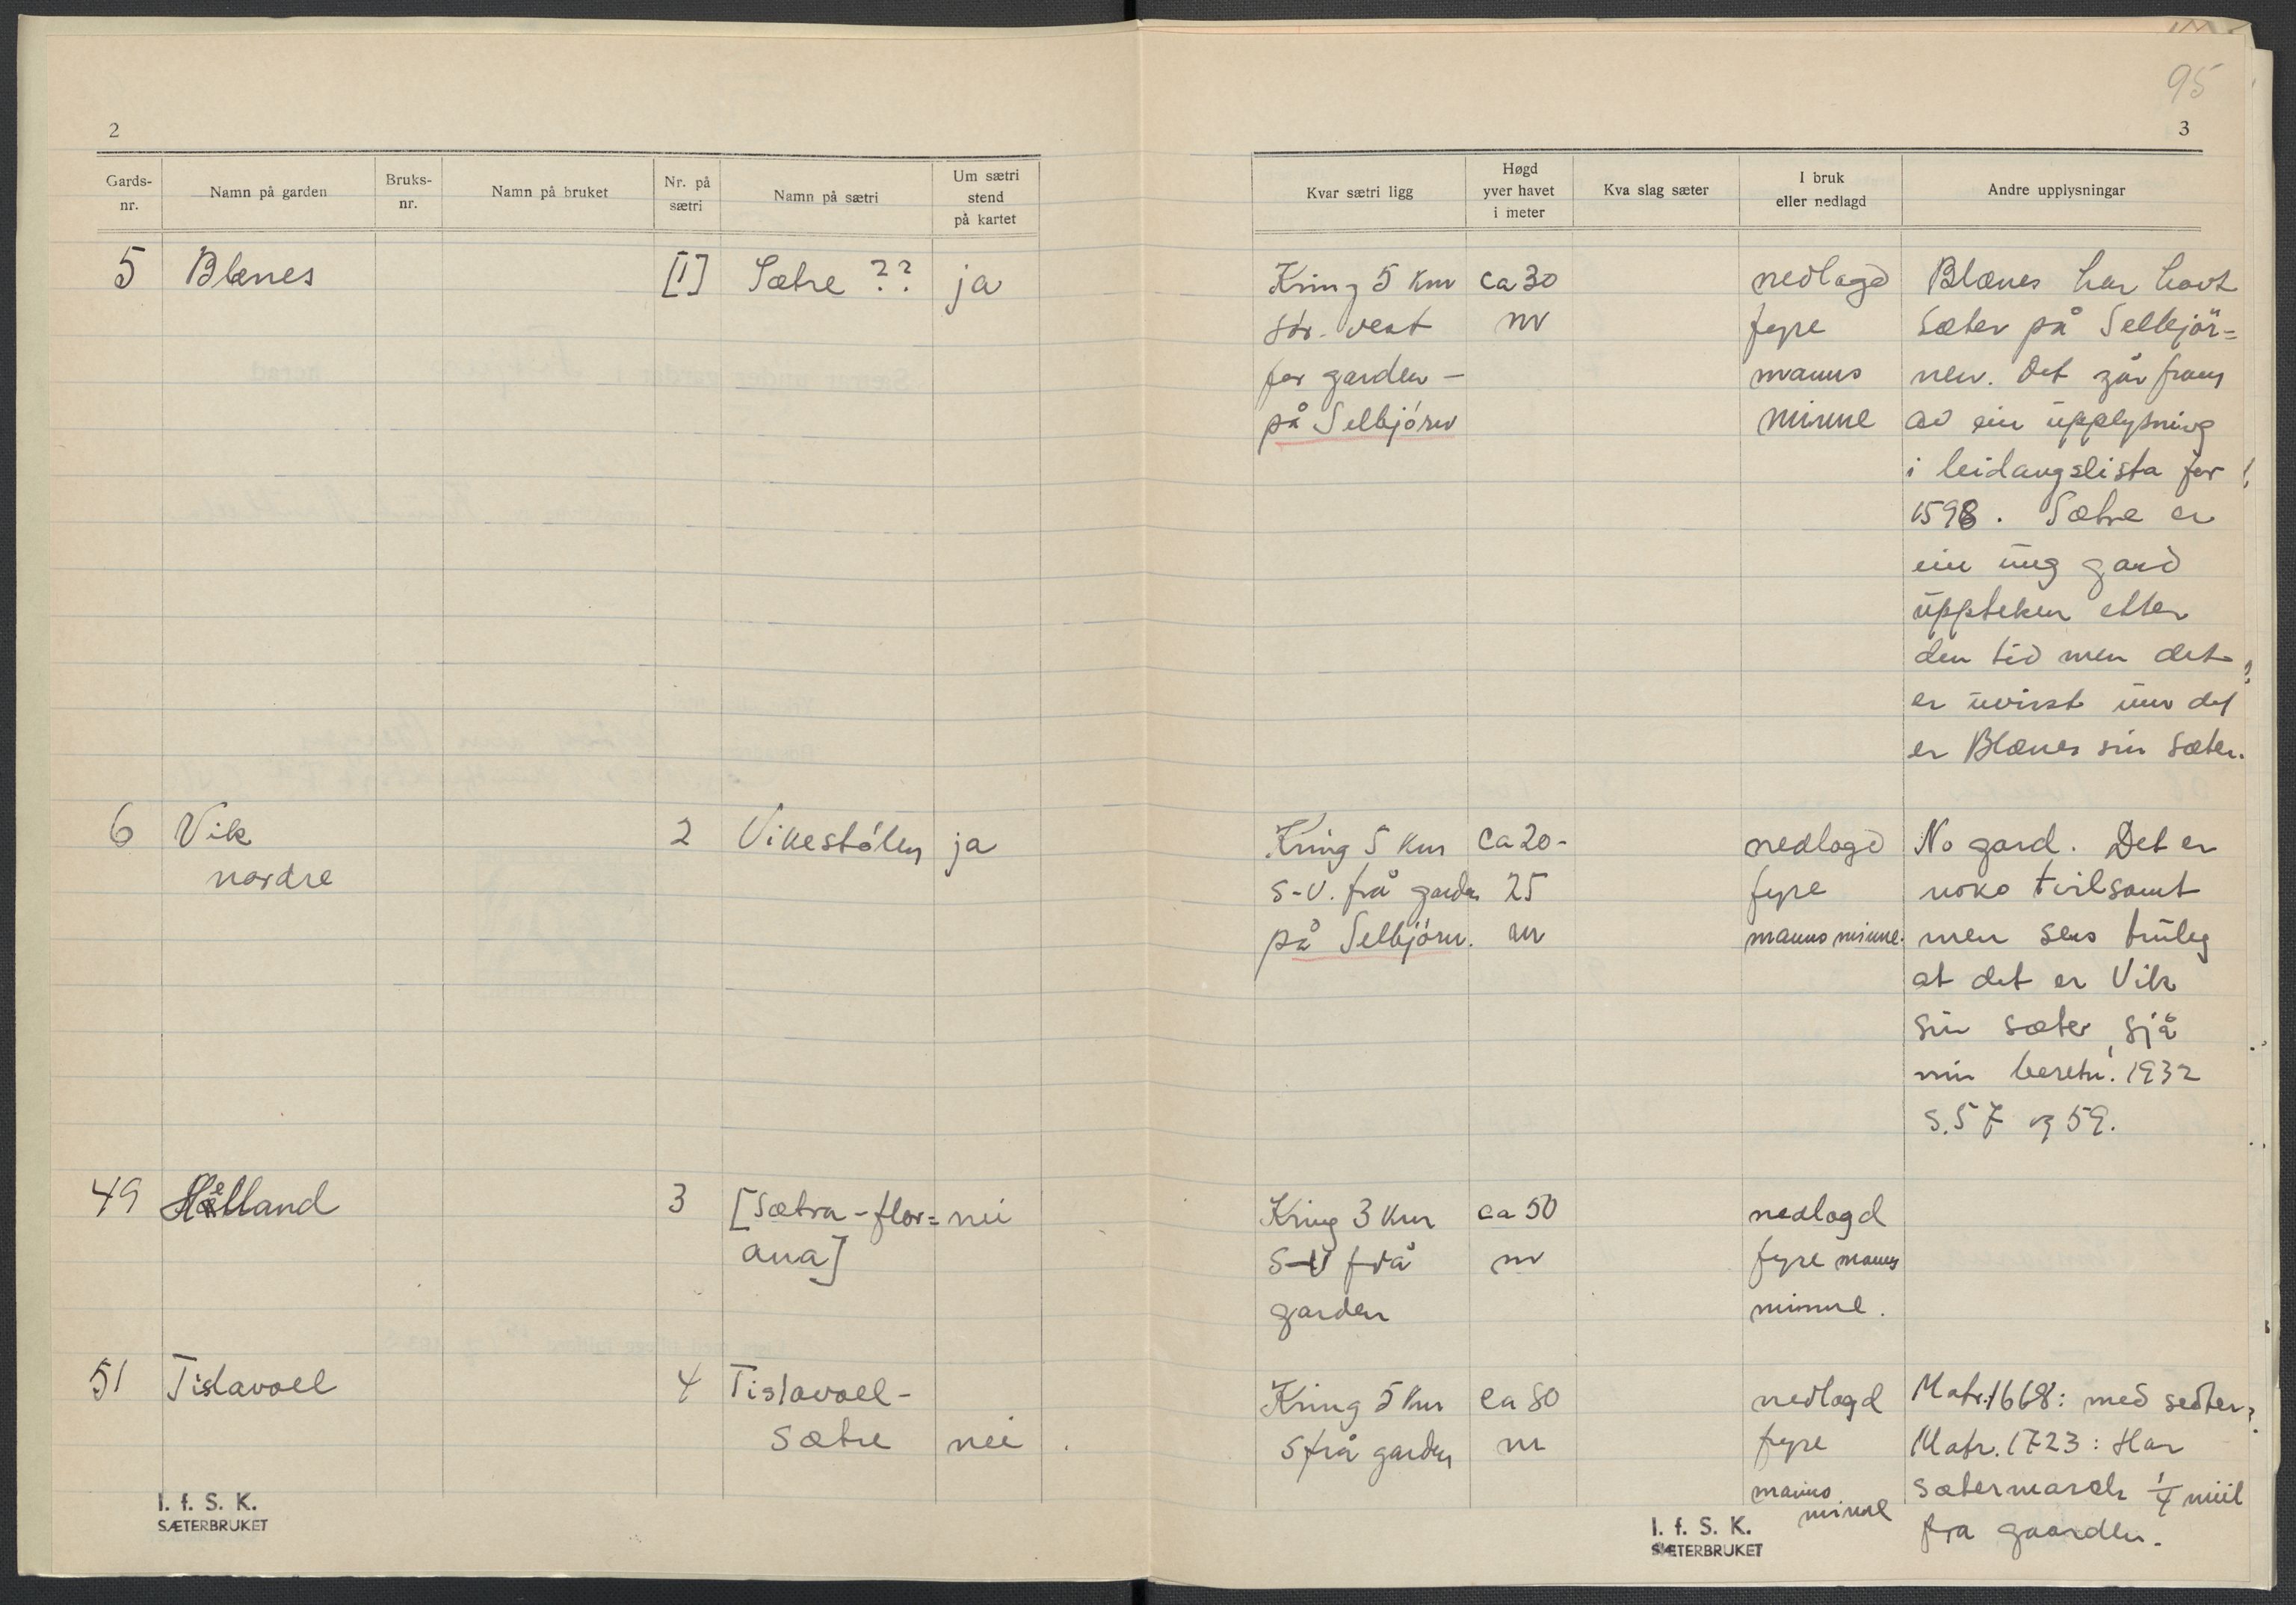 95
2
3
Gards-nr.
Namn på garden
Bruks-nr.
Namn på bruket
Nr. på sætri
Namn på sætri
Um sætri stend på kartet
Kvar sætri ligg
Høgd yver havet i meter
Kva slag sæter
I bruk eller nedlagd
Andre upplysningar
5 Blænes [1] Sætre ?? ja
Kring 5 km
sør-vest
for garden -
på Selbjórn
ca 30
m
nedlagd
fyre
manns
minne
Blænes har havt
sæter på Selbjör=
nen. Det går fram
av ein upplysning
i leidangslista for
1598. Sætre er
ein ung gard
uppteken etter
den tid men det
er uvisst um det
er Blænes sin sæter.
6 Vik
nordre
2 Vikestólen ja
Kring 5 km
S-V. frå garden
på Selbjórn.
ca 20-
25
m
nedlagd
fyre
manns minne.
No gard. Det er
noko tvilsamt
men truleg
at det er Vik
sin sæter, sjå
min beretn. 1932
S. 57 og 59.
49 Helland
3 [Sætra-flor=
ana]
nei
Kring 3 km
S-V frå
garden
ca 50
m
nedlagd
fyre manns
minne.
51 Tislavoll
4 Tislavoll-
Sætre nei
Kring 5 km
S frå garden
ca 80
m
nedlagd
fyre
manns
minne
Matr. 1668: med sedter
Matr. 1723: Har
sætermarch 1/4 miil
fra gaarden.
I. f. S. K.
SÆTERBRUKET
I. f. S. K.
SÆTERBRUKET